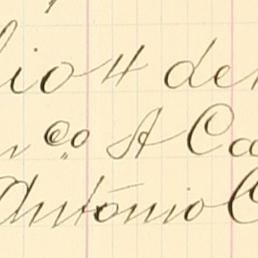 lio 4 de
n Co A Ca
António C